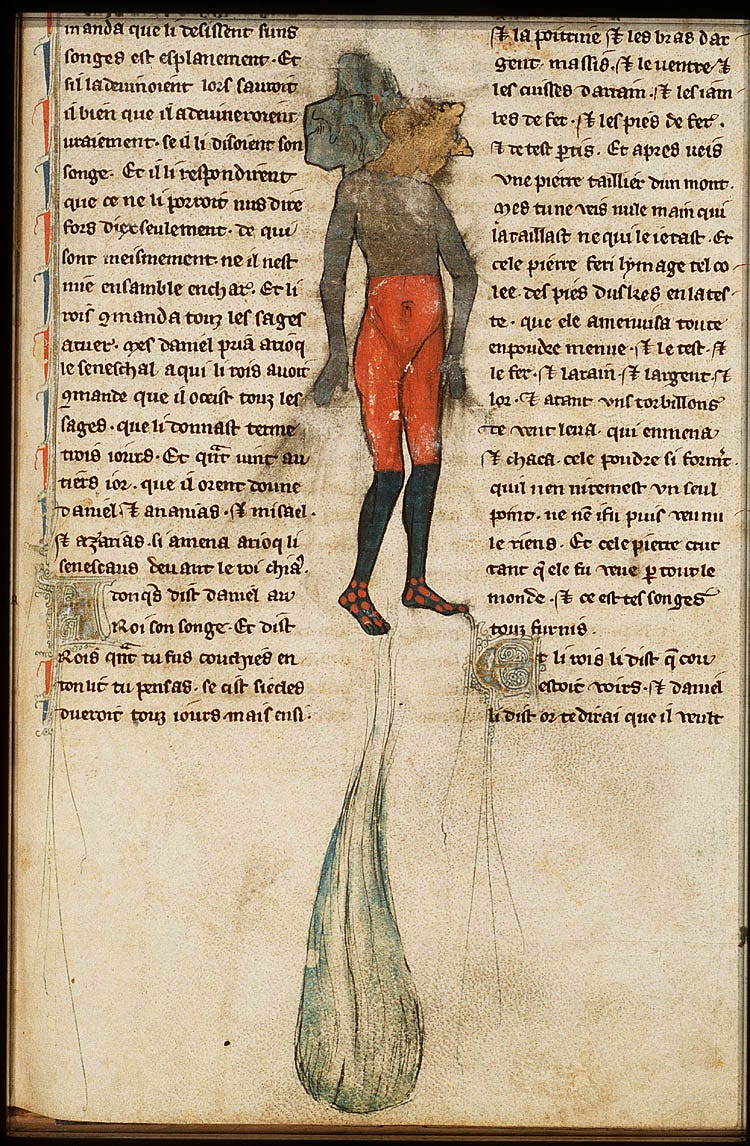 manda que li desissent sung
songes est esplanement. Et
sil la devinoient lors sauroit
il bien que il adevineroient
vraiement. se il li disoient son
songe. Et il li respondirent
que ce ne li porroit nus dire
fors diex seulement. de qui
sont meismement. ne il nest
mie ensamble en char. Et li
rois 9manda touz les sages
atuer. Mes daniel pria arioq
le seneschal a qui li rois avoit
9mande que il oceist touz les
sages. que li donnast terme
trois iours. Et qnt vint au
tiers ior. que il orent doune
daniel ⁊ ananias. ⁊ misael.
⁊ azarias. si amena arioq li
senescaus devant le roi
tonqs dist daniel au
Roi son songe. Et dist
Rois qnt tu fus couchies en
ton lit tu pensas. se cist siecles
dueroit touz iours mais ensi.
⁊ la poitrine ⁊ les bras dar
gent. massis. ⁊ le ventre ⁊
les cuisses darrain. ⁊ les iam
bes de fer. ⁊ les pies de fer.
⁊ de test ptis. Et apres veis
vne pierre taillier dun mont.
Mes tu ne veis nule main qui
la taillast ne qui le ietast. Et
cele pierre feri lymage tel co
lee. des pies duskes en la tes
te. que ele amenuisa toute
en poudre menue. ⁊ le test. ⁊
le fer. ⁊ larain. ⁊ largent. ⁊
lor. ⁊ atant vns torbillons
de vent leva. qui enmena
⁊ chaca. cele poudre si forment.
quil nen nitemest vn seul
point. ne puis veu nu
le riens. Et cele pierre crut
tant q ele fu veue p tout le
monde. ⁊ ce est tes songes
touz furnis.
Et li rois li dist q cou
estoit voirs. ⁊ daniel
li dist or te dirai que il veult